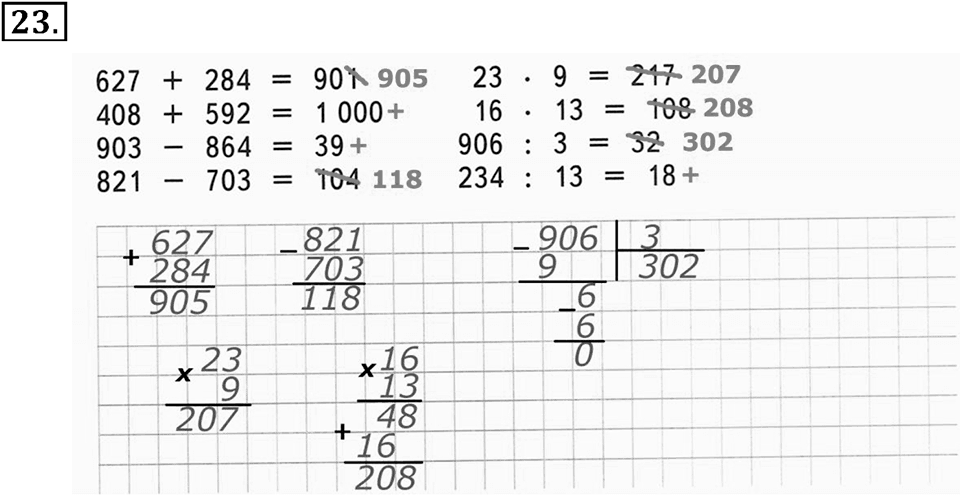 23.
627 + 284 = 901 905
408 + 592 = 1 000 +
903 − 864 = 39 +
821 − 703 = 104 118
23 · 9 = 217 207
16 · 13 = 108 208
906 : 3 = 32 302
234 : 13 = 18 +
+ 627
284
905
− 821
703
118
− 906 3
9 302
− 6
6
0
x 23
9
207
x 16
13
48
+ 16
208